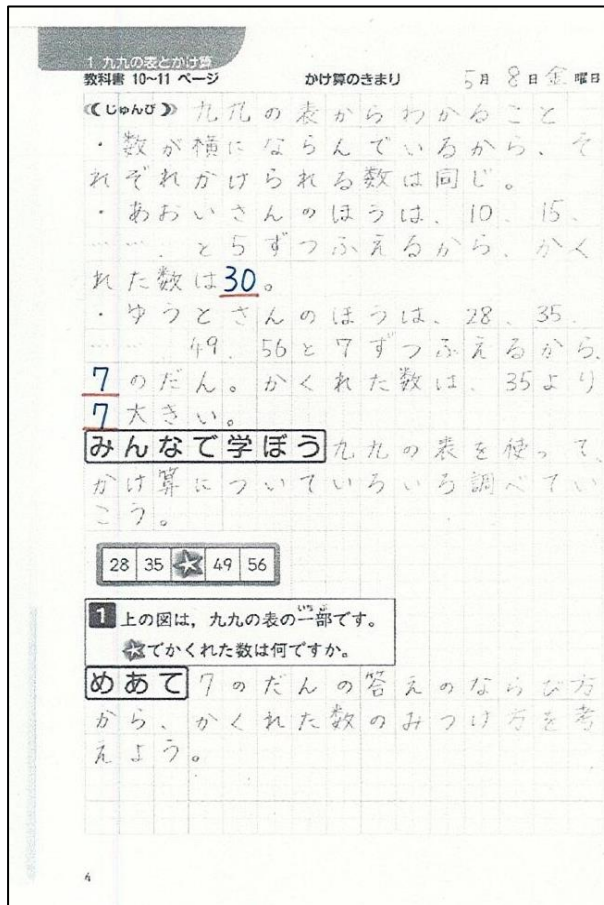 1 九九の表とかけ算
教科書 10~11 ページ かけ算のきまり 5月8日金曜日
《じゅんび》九九の表からわかること
・数が横にならんでいるから、そ
れぞれかけられる数は同じ。
・あおいさんのほうは、10、15、
……、と5ずつふえるから、かく
れた数は30。
・ゆうとさんのほうは、28、35、
…… 49、56と7ずつふえるから、
7のだん。かくれた数は、35より
7大きい。
みんなで学ぼう 九九の表を使って、
かけ算についていろいろ調べてい
こう。
28 35 ★ 49 56
1 上の図は,九九の表の一部です。
★でかくれた数は何ですか。
めあて 7のだんの答えのならび方
から、かくれた数のみつけ方を考
えよう。
4